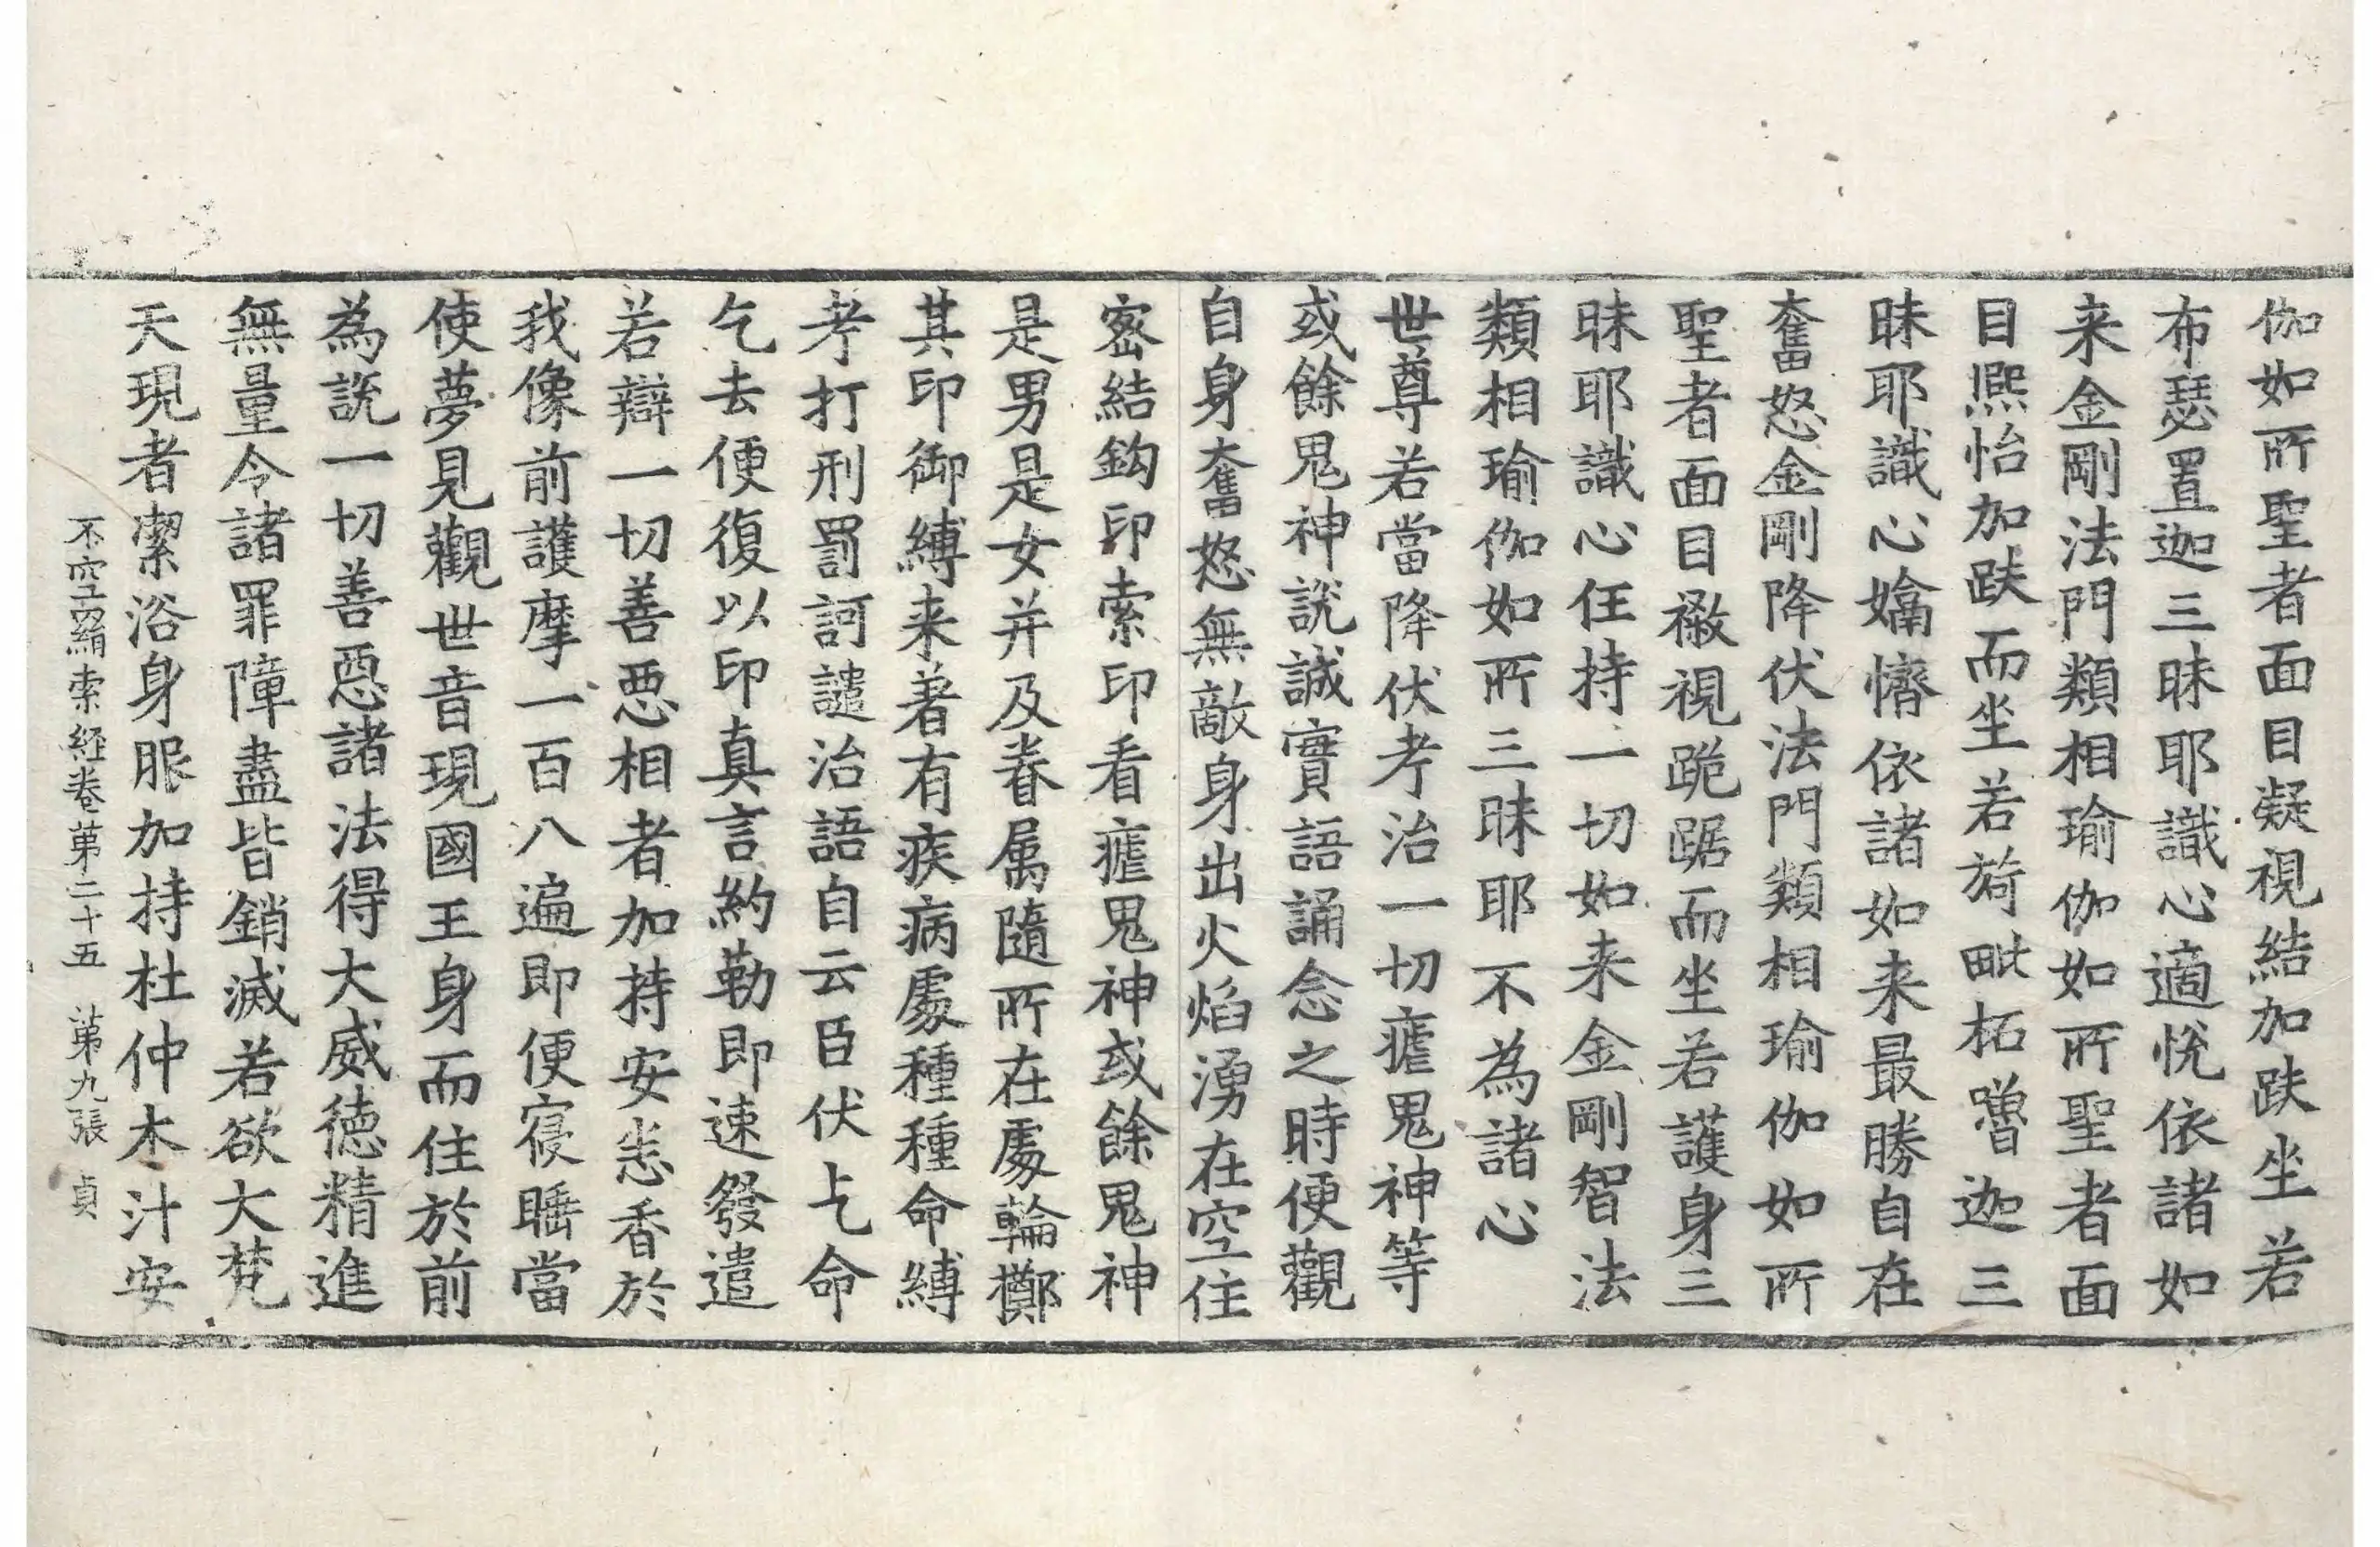 伽如所聖者面目凝視結加趺坐若
布瑟置迦三昧耶識心適悅依諸如
来金剛法門類相瑜伽如所聖者面
目熈怡加趺而坐若旖毗柘嚕迦三
昧耶識心嬌懠依諸如来最勝自在
奮怒金剛降伏法門類相瑜伽如所
聖者面目㘙視跪踞而坐若護身三
昧耶識心任持一切如来金剛智法
類相瑜伽如所三昧耶不為諸心
世尊若當降伏考治一切瘧鬼神等
或餘鬼神說誠實語誦念之時便觀
自身奮怒無敵身出火焰湧在空住
密結鈎印索印看瘧鬼神或餘鬼神
是男是女并及眷属隨所在處輪擲
其印御縛来著有疾病處種種命縛
考打刑罰訶譴治語自云臣伏乞命
乞去便復以印真言約勒即速發遣
若辯一切善惡相者加持安悉香於
我像前護摩一百八遍即便寢睡當
使夢見觀世音現國王身而住於前
為說一切善惡諸法得大威德精進
無量令諸罪障盡皆銷滅若欲大梵
天現者潔浴身服加持杜仲木汁安
不空羂索経卷第二十五 第九張 貞